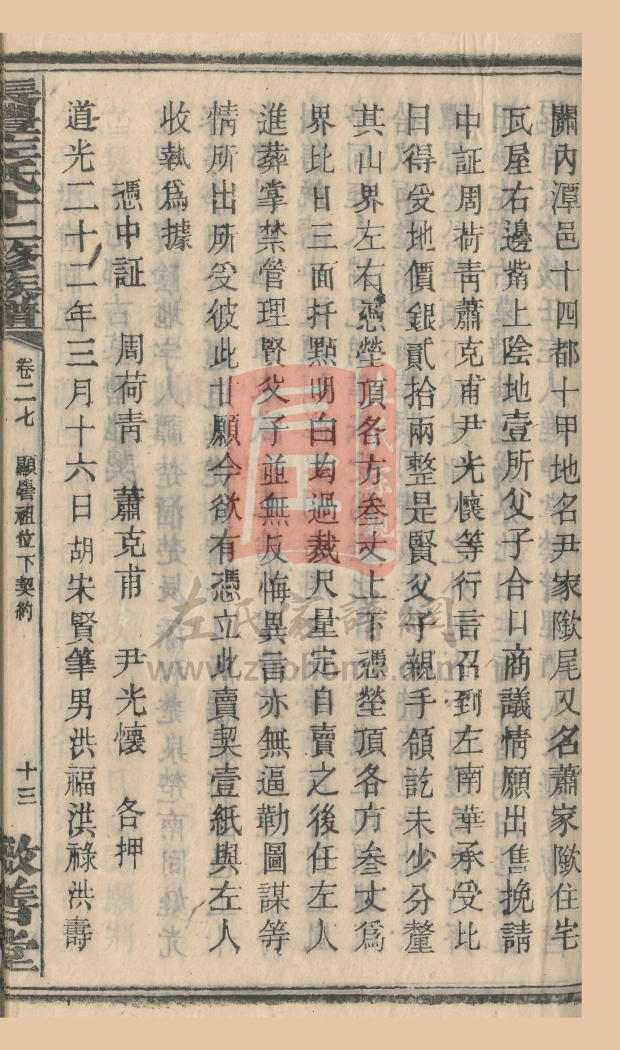 關內潭邑十四都十甲地名尹家㘓尾又名蕭家㘓住宅
瓦屋右邊嘴上陰地壹所父子合口商議情願出售挽請
中証周荷青蕭克甫尹光懷等行言召到左南華承受比
日得受地價銀貳拾兩整是賢父子親手領訖未少分釐
其山界左右憑塋頂各方叁丈上下憑塋頂各方叁丈爲
界比日三面扦點明白均過裁尺量定自賣之後任左人
進葬掌禁管理賢父子並無反悔異言亦無逼勒圖謀等
情所出所受彼此甘願今欲有憑立此賣契壹紙與左人
收執爲據
憑中証 周荷青 蕭克甫 尹光懷 各押
道光二十二年三月十六日胡宋賢筆男洪福洪祿洪壽
左氏十二修族譜 卷二七 顯譽祖位下契約 十三 敦善堂
左氏族譜網
www.zuohome.com